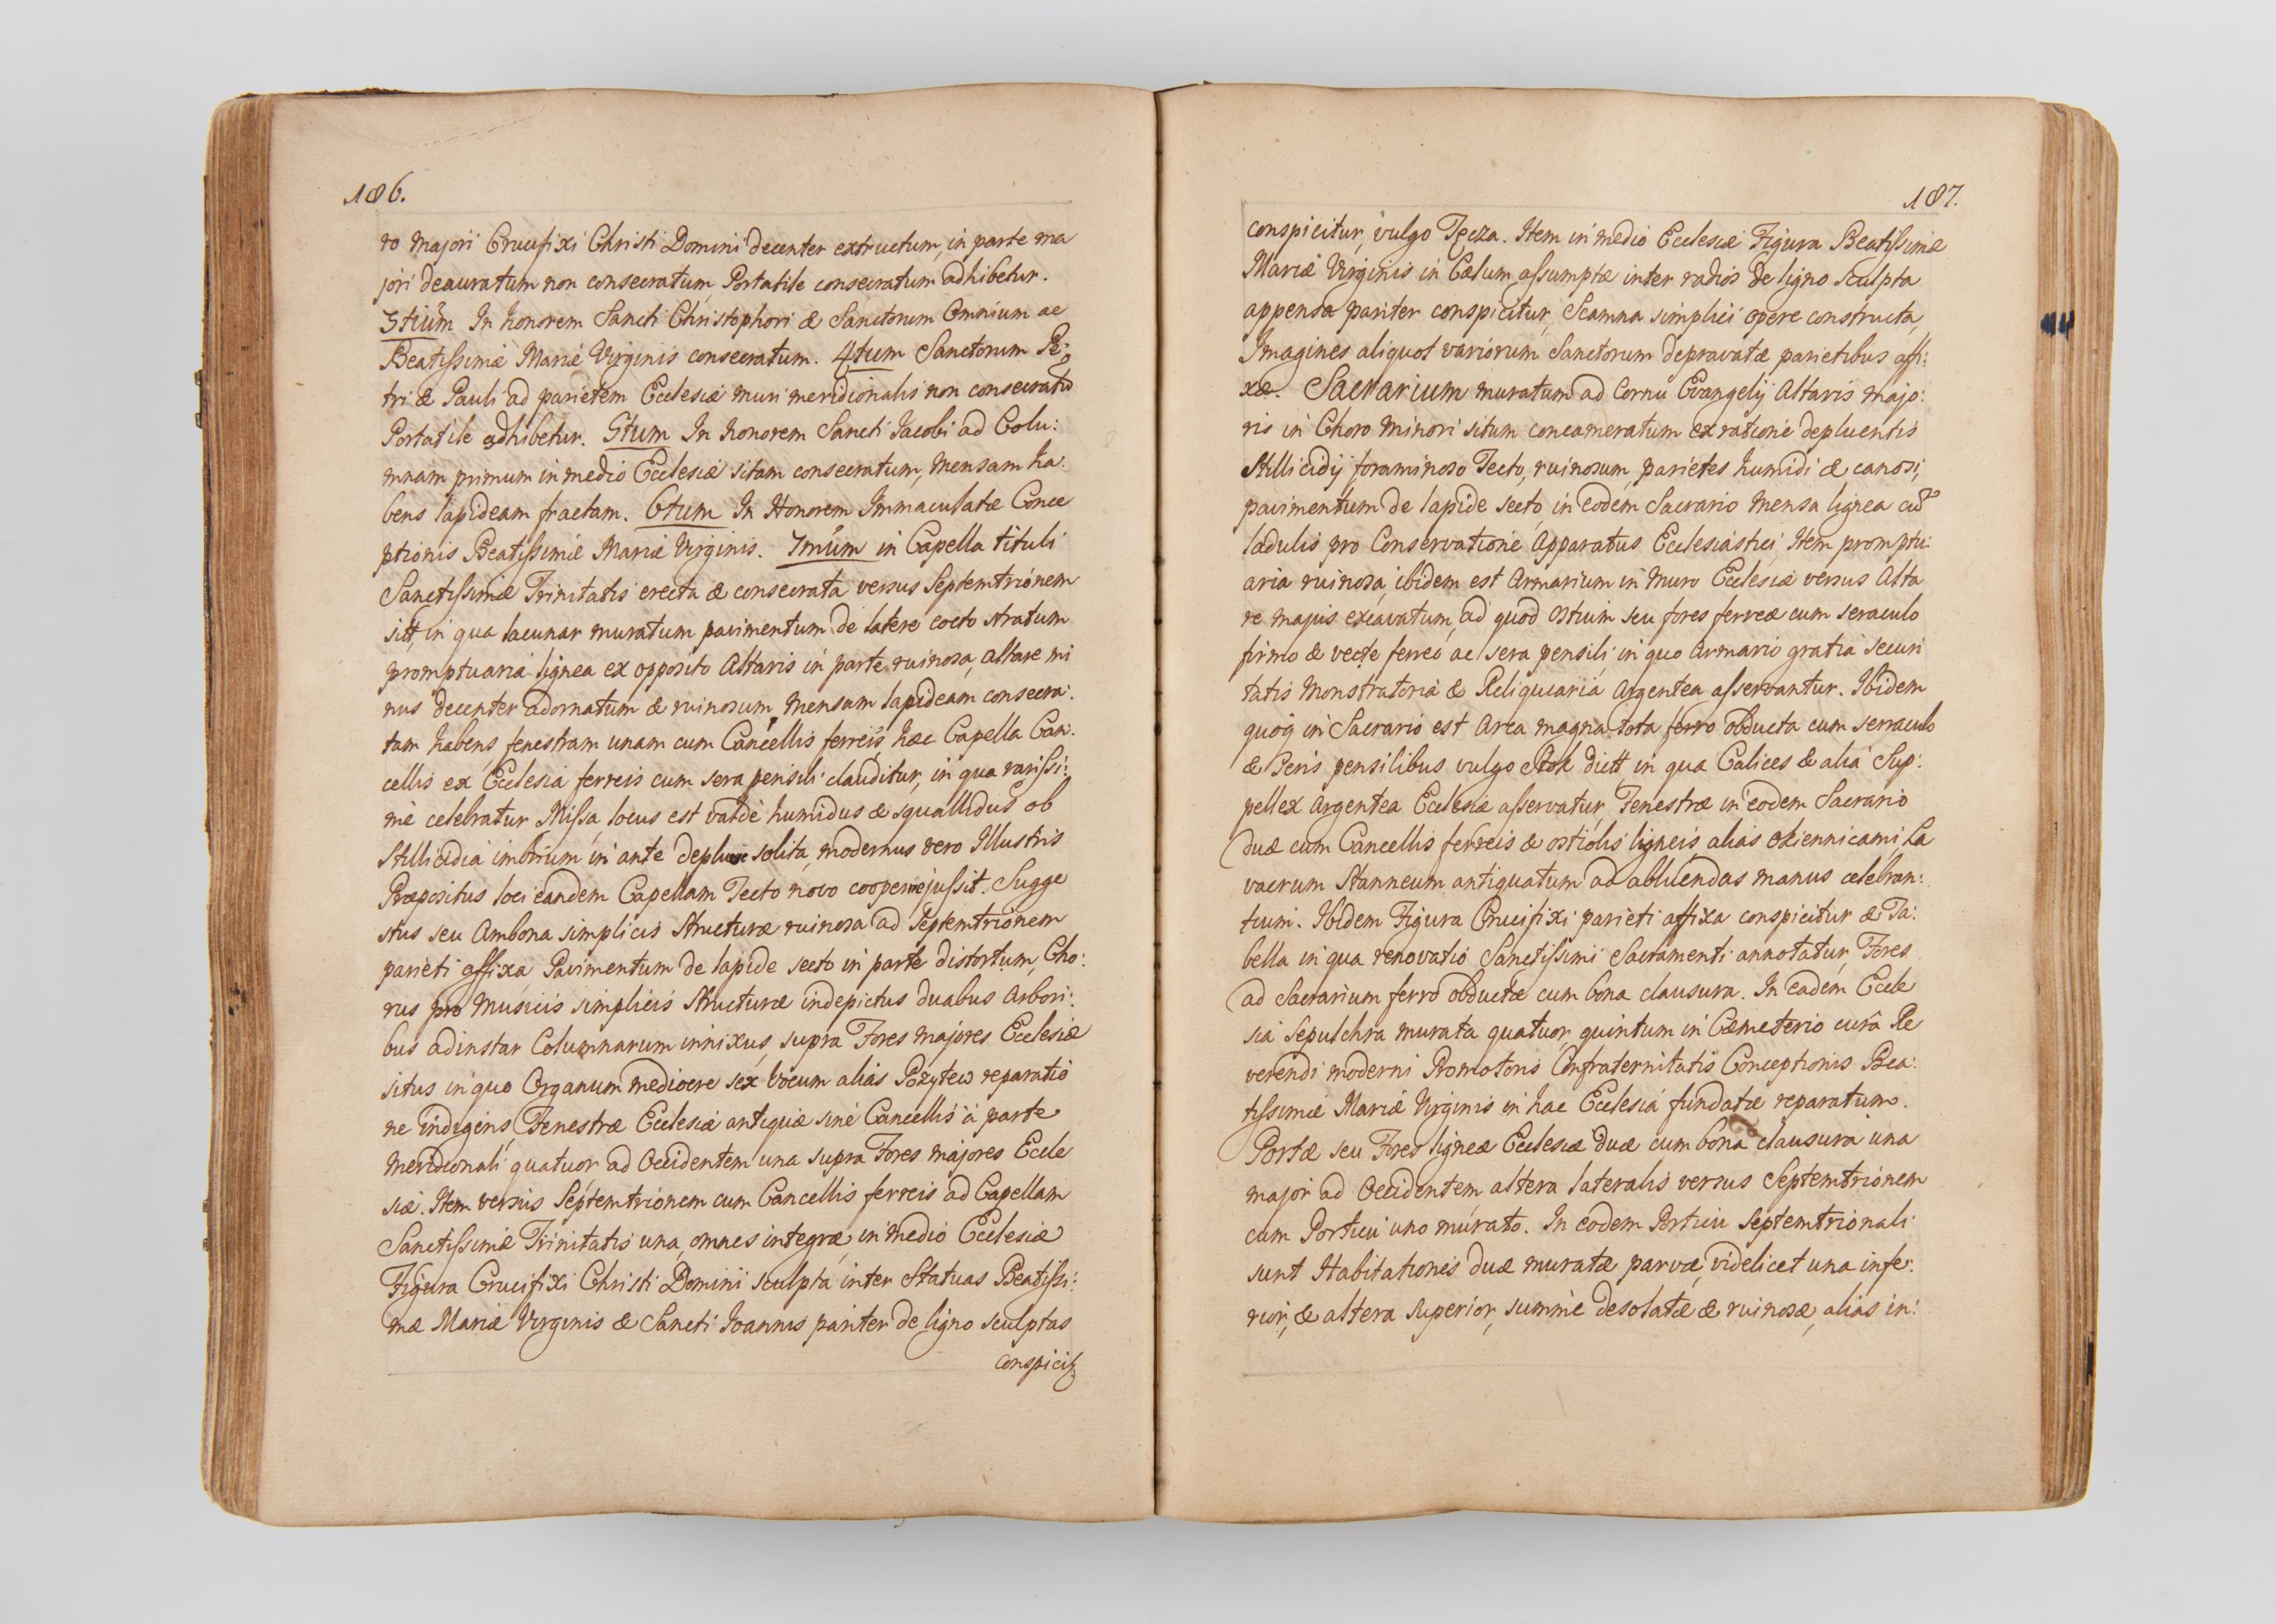 186.
ro majori Crucifixi Christi Domini decenter extructum, in parte ma
jori deauratum non consecratum, Portatile consecratum adhibetur.
3tiũm In honorem Sancti Christophori & Sanctorum Omnium ac
Beatissimæ Mariæ Virginis consecratum. 4tum Sanctorum Pe:
tri & Pauli ad parietem Ecclesiæ muri meridionalis non consecratũ
Portatile adhibetur. 5tum In honorem Sancti Jacobi ad Colu:
mnam primum in medio Ecclesiæ sitam consecratum, mensam ha:
bens lapideam fractam. 6tum In Honorem Immaculatæ Conce
ptionis Beatissimæ Mariæ Virginis. 7mũm in Capella tituli
Sanctissimæ Trinitatis erecta & consecrata versus Septemtrionem
sitt, in qua lacunar muratum pavimentum de latere cocto stratum
promptuaria lignea ex opposito Altaris in parte ruinosa, altare mi
nus decenter adornatum & ruinosum, mensam lapideam consecra:
tam habens, fenestram unam cum Cancellis ferreis, hæc Capella Can:
cellis ex Ecclesia ferreis cum sera pensili clauditur, in qua rarissi:
mè celebratur Missa, locus est valdè humidus & squallidus ob
Stillicidia imbrium in ante depluere solita, modernus vero Illustris
Præpositus loci eandem Capellam Tecto novo cooperire jussit. Sugge
stus seu Ambona simplicis Structuræ ruinosa ad Septemtrionem
parieti affixa, Pavimentum de lapide secto in parte distortum, Cho:
rus pro Musicis simplicis Structuræ indepictus duabus Arbori:
bus adinstar Columnarum innixus, supra Fores majores Ecclesiæ
situs in quo Organum mediocre sex Vocum aliàs Pozytew reparatio
ne indigens, Fenestræ Ecclesiæ antiquæ sinè Cancellis à parte
meridionali quatuor ad Occidentem una supra Fores majores Eccle
siæ. Item versus Septemtrionem cum Cancellis ferreis ad Capellam
Sanctissimæ Trinitatis una, omnes integræ, in medio Ecclesiæ
Figura Crucifixi Christi Domini sculpta inter Statuas Beatissi:
mæ Mariæ Virginis & Sancti Joannis pariter de ligno sculptas
conspicit
187.
conspicitur, vulgo Tęcza. Item in medio Ecclesiæ Figura Beatissimæ
Mariæ Virginis in Cælum assumptæ inter radios de ligno sculpta
appensa pariter conspicitur, Scamna simplici opere constructa,
Imagines aliquot variorum Sanctorum depravatæ parietibus affi:
xæ. Sacrarium muratum ad Cornu Evangelij Altaris majo:
ris in Choro minori situm concameratum ex ratione depluentis
Stillicidij foraminoso Tecto, ruinosum, parietes humidi & canosi,
pavimentum de lapide secto, in eodem Sacrario mensa lignea cũ
ladulis pro Conservatione Apparatus Ecclesiastici, Item promptu:
aria ruinosa, ibidem est Armarium in Muro Ecclesiæ versus Alta
re majus excavatum, ad quod ostium seu fores ferreæ cum seraculo
firmo & vecte ferreo ac sera pensili, in quo Armario gratia securi
tatis Monstratoria & Reliquiaria Argentea asservantur. Ibidem
quoq̃ in Sacrario est Arca magna tota ferro obducta cum serraculo
& Seris pensilibus vulgo Stok dictt, in qua Calices & alia Sup:
pellex Argentea Ecclesiæ asservatur, Fenestræ in eodem Sacrario
duæ cum Cancellis ferreis & ostiolis ligneis aliàs okiennicami, La
vacrum Stanneum antiquatum ad abluendas manus celebran:
tium. Ibidem Figura Crucifixi parieti affixa conspicitur & Ta:
bella in qua renovatio Sanctissimi Sacramenti annotatur, Fores
ad Sacrarium ferro obductæ cum bona clausura. In eadem Eccle
sia Sepulchra murata quatuor, quintum in Cæmeterio curâ Re
verendi moderni Promotoris Confraternitatis Conceptionis Bea:
tissimæ Mariæ Virginis in hac Ecclesiâ fundatæ reparatum.
Portæ seu Fores ligneæ Ecclesiæ duæ cum bona clausura una
major ad Occidentem, altera lateralis versus Septemtrionem
cum Porticu uno murato. In eodem Porticu Septemtrionali
sunt Habitationes duæ muratæ parvæ, videlicet una infe:
rior, & altera superior, summè desolatæ & ruinosæ, aliàs in: